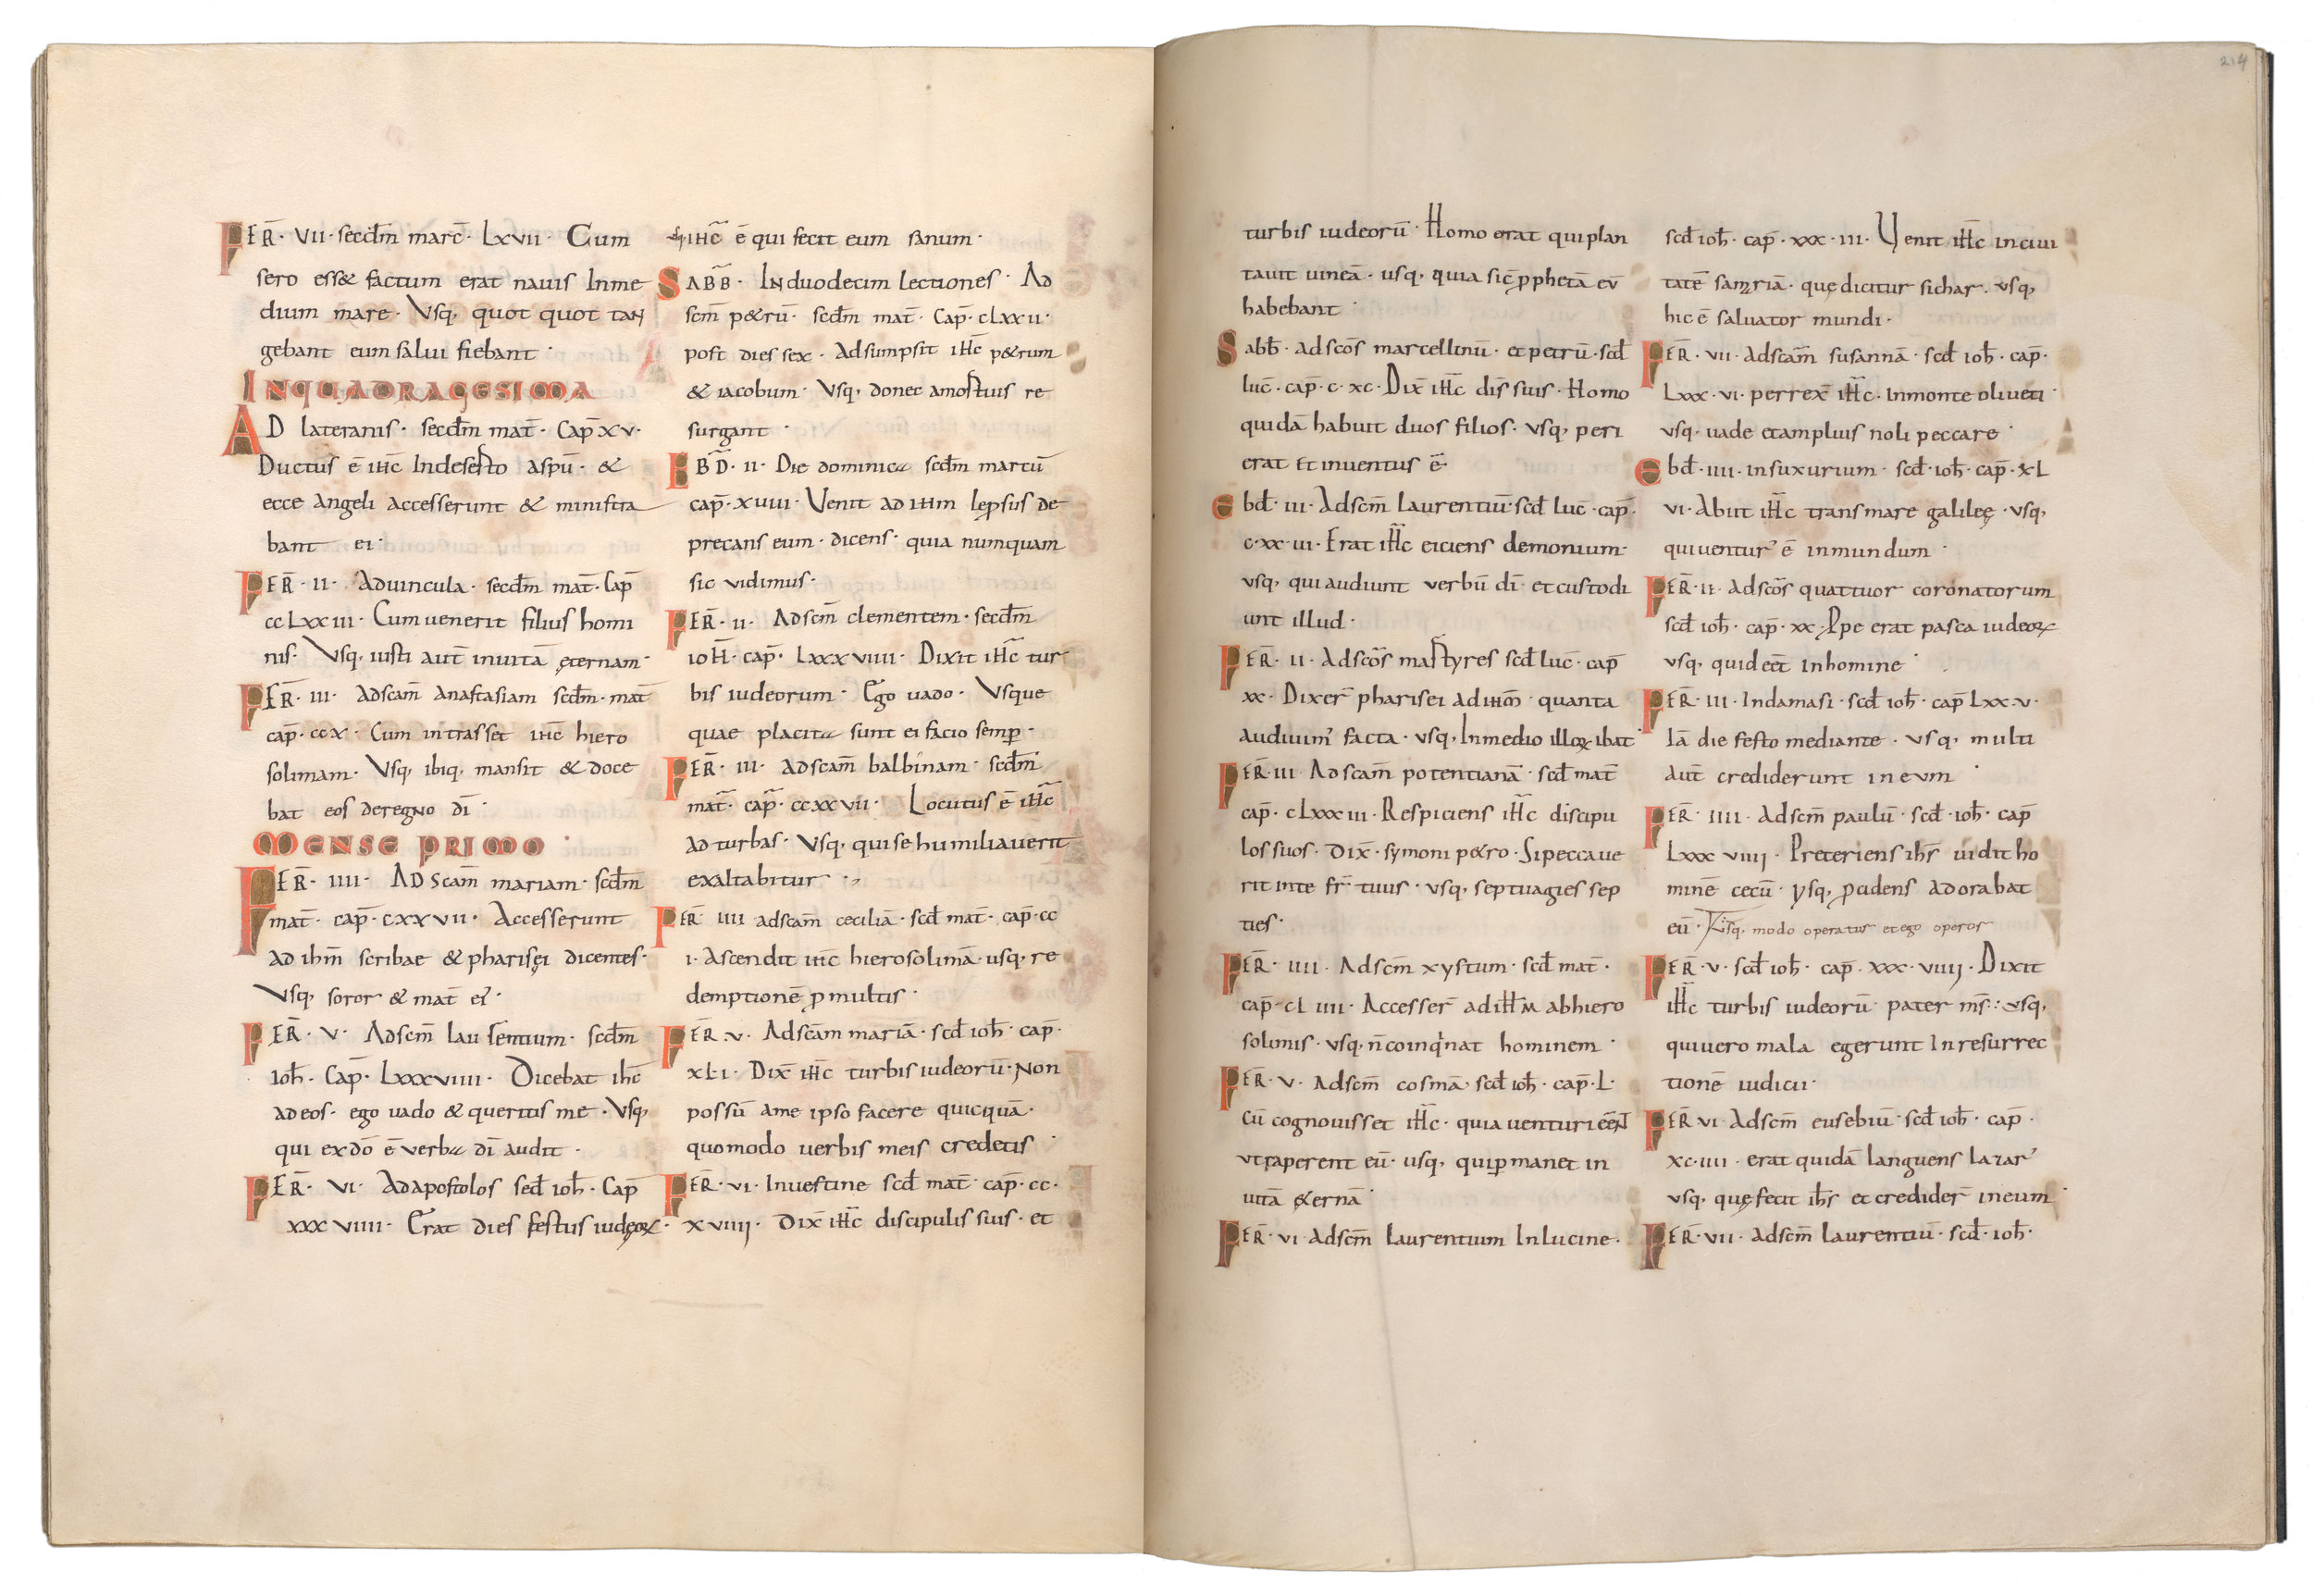 FER̄ · VII · secd̄m marc̄ · Lxvii · Cum
sero ess& factum erat nauis Inme
dium mare · Vsq, quot quot tan
gebant eum salui fiebant ·
INQUADRAGESIMA
AD lateranis · secd̄m mat̄ · Cap̄ xv ·
Ductus ē ihc̄ Indeserto aspū · &
ecce angeli accesserunt & ministra
bant ei ·
FER̄ · II · Aduincula · secd̄m mat̄ · Cap̄
ccLxxiii · Cum uenerit filius homi
nis · Vsq, iusti aut̄ inuitā ęternam
FER̄ · III · adscam̄ anastasiam secd̄m · mat̄
cap̄ · ccx · Cum intrasset ihc̄ hiero
solimam · Vsq, ibiq, mansit & doce
bat eos deregno dī ·
MENSE PRIMO ·
FER̄ · IIII · ADscam̄ mariam · scd̄m
mat̄ · cap̄ · cxxvii · Accesserunt
ad ihm̄ scribae & pharisęi dicentes ·
Vsq, soror & mat̄ ei' ·
FER̄ · V · Adscm̄ laurentium · secd̄m
ioh̄ · Cap̄ · Lxxxviiii · Dicebat ihc̄
adeos · ego uado & queritis me · Vsq,
qui exdō ē verba dī audit ·
FER̄ · VI · Adapostolos scd̄ ioh̄ · Cap̄
xxxviiii · Erat dies festus iudęoꝝ ·
ihc̄ ē qui fecit eum sanum ·
SABB̄ · Induodecim lectiones · Ad
scm̄ p&rū · secd̄m mat̄ · Cap̄ · cLxxii ·
post dies sex · Adsumpsit ihc̄ p&rum
& iacobum · Vsq, donec amortuis re
surgant ·
EBD̄ · II · Die dominica secd̄m marcū
cap̄ · xviiii · Venit ad ihm leprsus de
precans eum · dicens · quia numquam
sic vidimus ·
FER̄ · II · Adscm̄ clementem · secd̄m
ioh̄ · cap̄ · Lxxxviiii · Dixit ihc̄ tur
bis iudeorum · Ego uado · Vsque
quae placita sunt ei facio semꝑ ·
FER̄ · III · adscam̄ balbinam · secd̄m
mat̄ · cap̄ · ccxxvii · Locutus ē ihc̄
ad turbas · Vsq, qui se humiliauerit
exaltabitur ·
FER̄ IIII adscam̄ ceciliā · scd̄ mat̄ · cap̄ · cc
i · Ascendit ihc̄ hierosolimā · usq, re
demptionē ꝑ multis ·
FER̄ · V · Adscām mariā · scd̄ ioh̄ · cap̄ ·
xLi · Dix̄ ihc̄ turbis iudeorū · Non
possū ame ipso facere quicquā ·
quomodo uerbis meis credetis ·
FER̄ · VI · Inuestine scd̄ mat̄ cap̄ · cc ·
xviiij · Dix̄ ihc̄ discipulis suis · et
214
turbis iudeorū · Homo erat quiplan
tauit uineā · usq, quia sic̄ ꝓphetā eū
habebant ·
Sabb̄ · adscōs marcellinū · et petrū · scd̄
luc̄ · cap̄ · c · xc · Dix̄ ihc̄ dis̄ suis · Homo
quidā habuit duos filios · usq, peri
erat et inuentus ē ·
Ebd̄ · III · Adscm̄ Laurentiū · scd̄ luc̄ · cap̄ ·
c · xx · iii · Erat ihc̄ eiciens demonium ·
vsq, qui audiunt verbū dī · et custodi
unt illud ·
FER̄ · II · Adscōs martyres scd̄ luc̄ · cap̄
xx · Dixer̄ pharisei ad ihm̄ · quanta
audiuim' facta · vsq, Inmedio illoꝝ ibat ·
FER̄ · III · Adscam̄ potentianā · scd̄ mat̄
cap̄ · cLxxxiii · Respiciens ihc̄ discipu
los suos · Dix̄ · symoni p&ro · Si peccaue
rit inte fr̄ tuus · vsq, septuagies sep
ties ·
FER̄ · IIII · Adscm̄ xystum · scd̄ mat̄ ·
cap̄ · cLiiii · Accesser̄ ad ihm abhiero
solimis · vsq, n̄ coinqnat hominem ·
FER̄ · V · Adscm̄ cosmā · scd̄ ioh̄ · cap̄ · L ·
Cū cognouisset ihc̄ · quia uenturi eēnt
vtraperent eū · usq, quiꝑmanet in
uitā &ernā ·
FER̄ · VI · Adscm̄ Laurentium Inlucine ·
scd̄ ioh̄ · cap̄ · xxx · iii · Uenit ihc̄ inciui
tatē samriā · quę dicitur sichar · vsq,
hic ē saluator mundi ·
FER̄ · VII · Adscam̄ susannā · scd̄ ioh̄ · cap̄ ·
Lxxx · vi · perrex̄ ihc̄ · Inmonte oliueti ·
vsq, uade et amplius noli peccare ·
Ebd̄ · IIII · insuxurium · scd̄ · ioh̄ · cap̄ · xL
vi · Abiit ihc̄ trans mare galileę · vsq,
qui uentur' ē inmundum ·
FER̄ · II · adscōs quattuor coronatorum
scd̄ ioh̄ · cap̄ · xx · Ꝓpe erat pasca iudeoꝝ
vsq, quid eēt inhomine ·
FER̄ · III · Indamasi · scd̄ ioh̄ · cap̄ Lxx · v ·
Iā die festo mediante · vsq, multi
aut̄ crediderunt in eum ·
FER̄ · IIII · Adscm̄ paulū · scd̄ · ioh̄ · cap̄
Lxxxviiij · Preteriens ihs̄ uidit ho
minē cecū · vsq, ꝓcidens adorabat
eū · Vsq, modo operatur et ego operor
FER̄ · V · scd̄ ioh̄ · cap̄ · xxx · viiij · Dixit
ihc̄ turbis iudeorū · pater ms̄ · vsq,
qui uero mala egerunt Inresurrec
tionē iudicii ·
FER̄ VI · Adscm̄ eusebiū · scd̄ ioh̄ · cap̄ ·
xc · iiii · erat quidā languens lazar'
vsq, quę fecit ihs̄ et credider̄ in eum ·
FER̄ · VII · Adscm̄ Laurentiū · scd̄ · ioh̄ ·